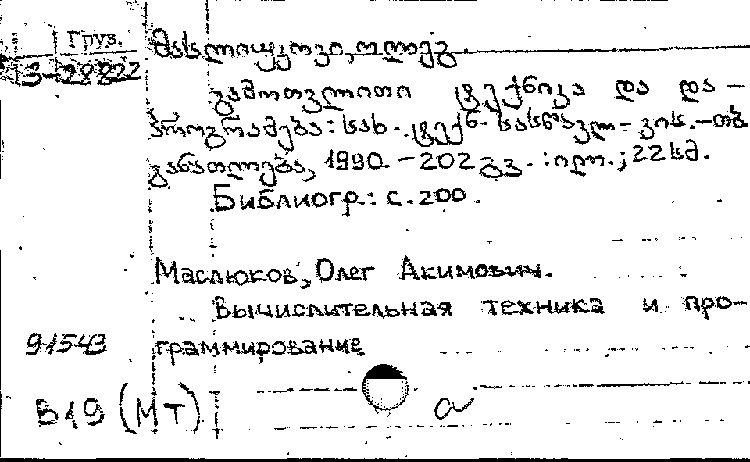 Груз.
3-28822
მასლიუკოვი, ოლეგ.
გამოთვლითი ტექნიკა და და-
პროგრამება: სახ. ტექნ. სასწავლ- კის. -თბ
განათლება, 1990. - 202 გვ. : ილ. ; 22 სმ.
Библиогр.: с. 200.
Маслюков, Олег Акимович.
Вычислительная техника и про-
91543 граммирование
В19 (МТ)